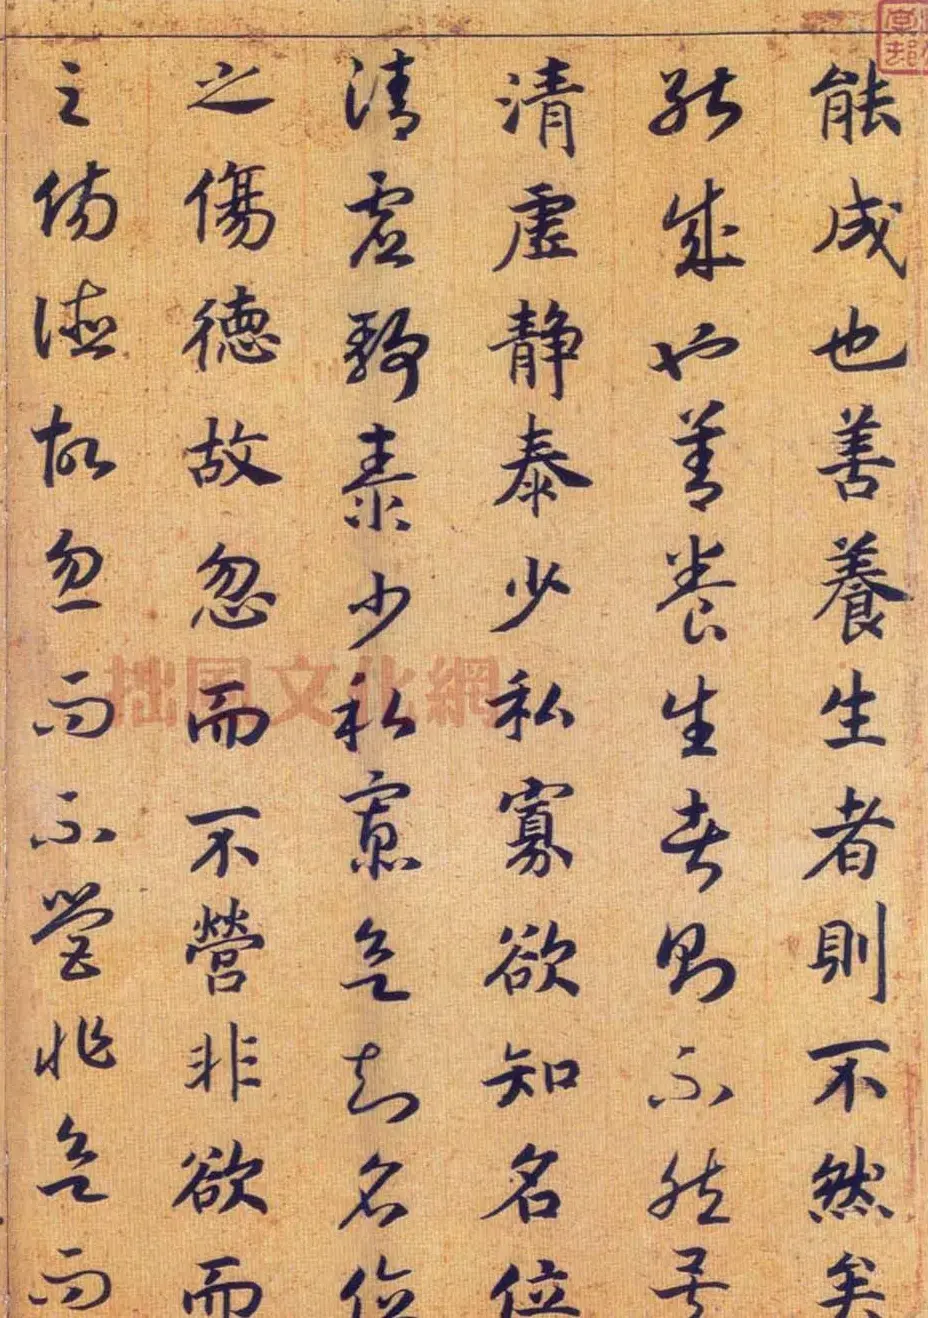 能成也善養生者則不然矣
能成也善養生者則不然矣
清虛靜泰少私寡欲知名位
清虛靜泰少私寡欲知名位
之傷德故忽而不營非欲而
之傷德故忽而不營非欲而
拙風文化網